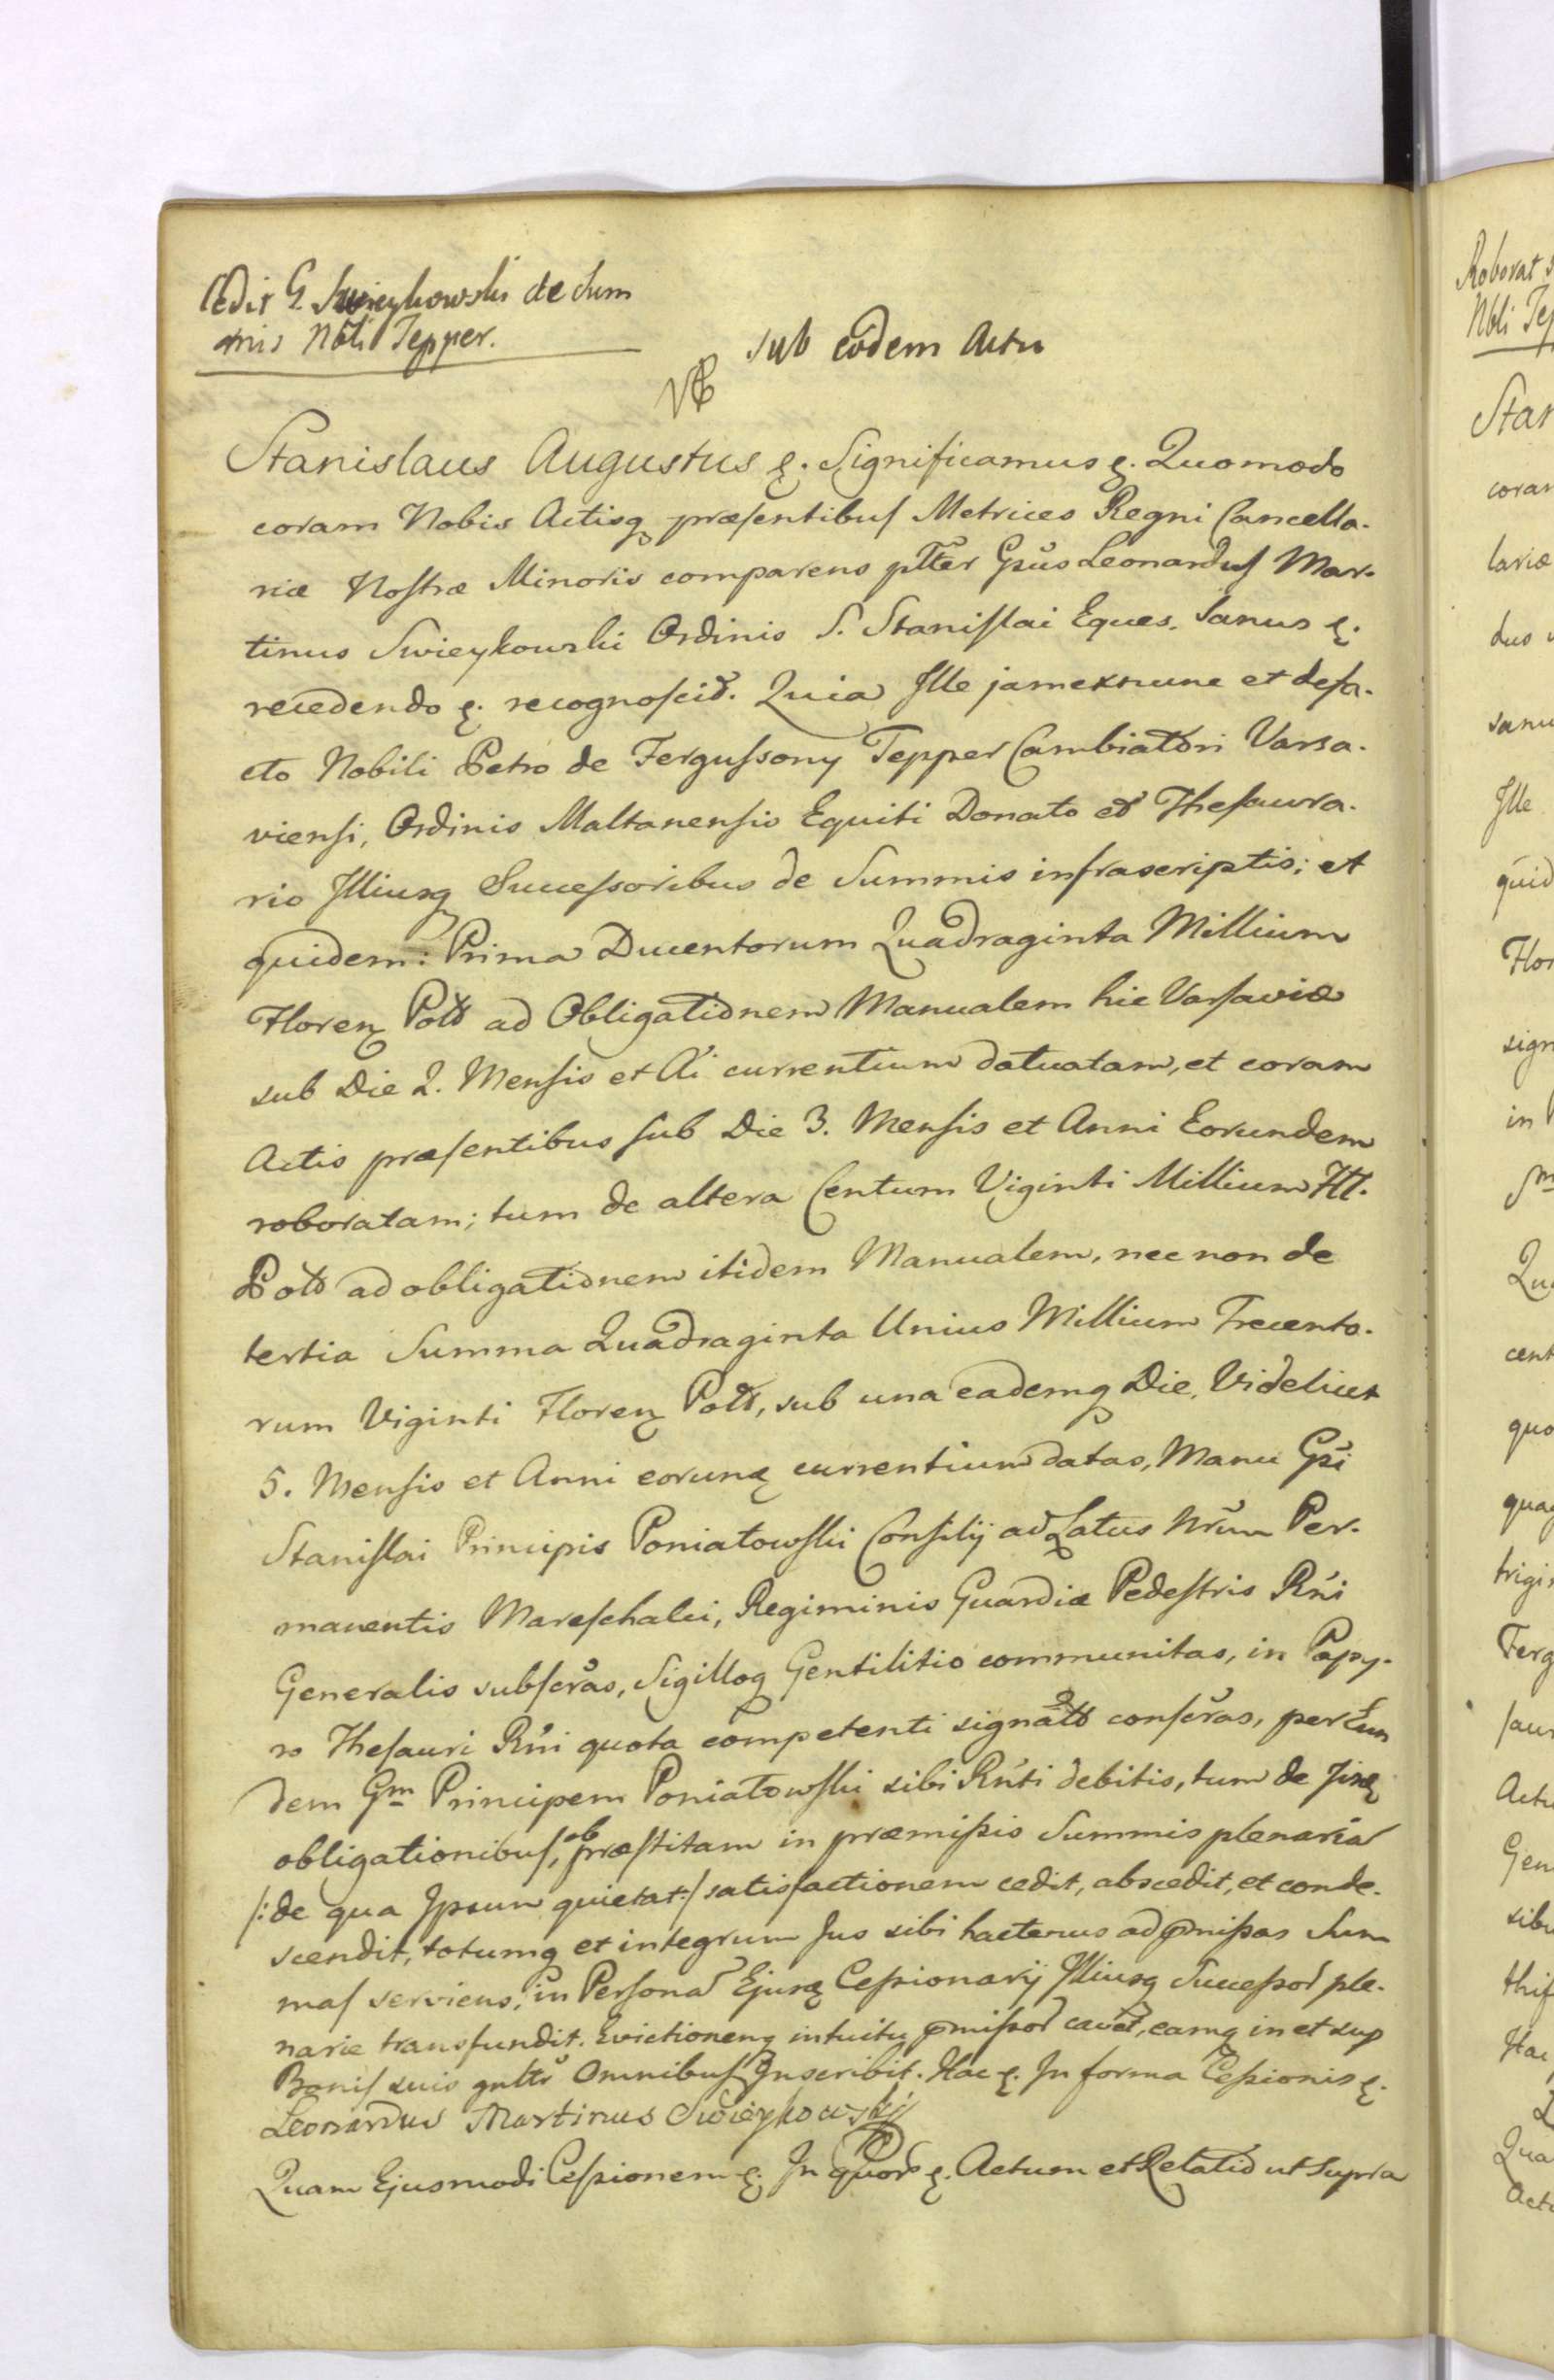 Cedit G. Swieykowski de Sum
mis Nbli Tepper.
sub eodem Actu
Stanislaus Augustus &. Significamus &. Quomodo
coram Nobis Actisq præsentibus Metrices Regni Cancella-
riæ Nostræ Minoris comparens pltter Gsŭs Leonardus Mar-
tinus Swieykowski Ordinis S. Stanislai Eques. Sanus &.
recedendo &. recognoscit. Quia Ille jamexnunc et defa-
cto Nobili Petro de Fergussony Tepper Cambiatori Varsa-
viensi, Ordinis Maltanensis Equiti Donato et Thesaura-
rio Illiusq Successoribus de Summis infrascriptis; et
quidem: Prima Ducentorum Quadraginta Millium
Floren Pold ad Obligationem Manualem hic Varsaviæ
sub Die 2. Mensis et Ai currentium datuatam, et coram
Actis præsentibus sub Die 3. Mensis et Anni Eorundem
roboratam; tum de altera Centum Viginti Millium Fl.
Pold ad obligationem itidem Manualem, nec non de
tertia Summa Quadraginta Unius Millium Trecento-
rum Viginti Floren Pold, sub una eademq Die, Videlicet
5. Mensis et Anni eorund currentium datas, Manu Gsi
Stanislai Principis Poniatowski Consilij ad Latus Nrŭm Per-
manentis Mareschalci, Regiminis Guardiæ Pedestris Rńi
Generalis subscrăs, Sigilloq Gentilitio communitas, in Papy-
ro Thesauri Rńi quota competenti signato conscrăs, per Eun
dem Gm Principem Poniatowski sibi Rńti debitis, tum de Jisd
obligationibus, ob præstitam in præmissis Summis plenaria
/: de qua Ipsum quietat :/ satisfactionem cedit, abscedit, et conde-
scendit, totumq et integrum Jus sibi hactenus ad pmissas Sum
mas serviens, in Persona Ejusd Cessionarij Illiusq Successor ple-
narie transfundit. Evictionemq intuitu pmissor cavet, eamq in et sup
Bonis suis gnltr Omnibus Inscribit. Hac &. In forma Cessionis &.
Leonardus Martinus Swieykowskij
Quam Ejusmodi Cessionem &. In quor &. Actum et Relatio ut Supra
Roborat
Nbli Tep
Stan
coram
lariæ
dus
sanu
Ille
quid
Flor
sign
in
Sm
Qua
cent
quo
quag
trigin
Ferg
saur
Actu
Gen
sibi
thif
Hac
Qua
Actu